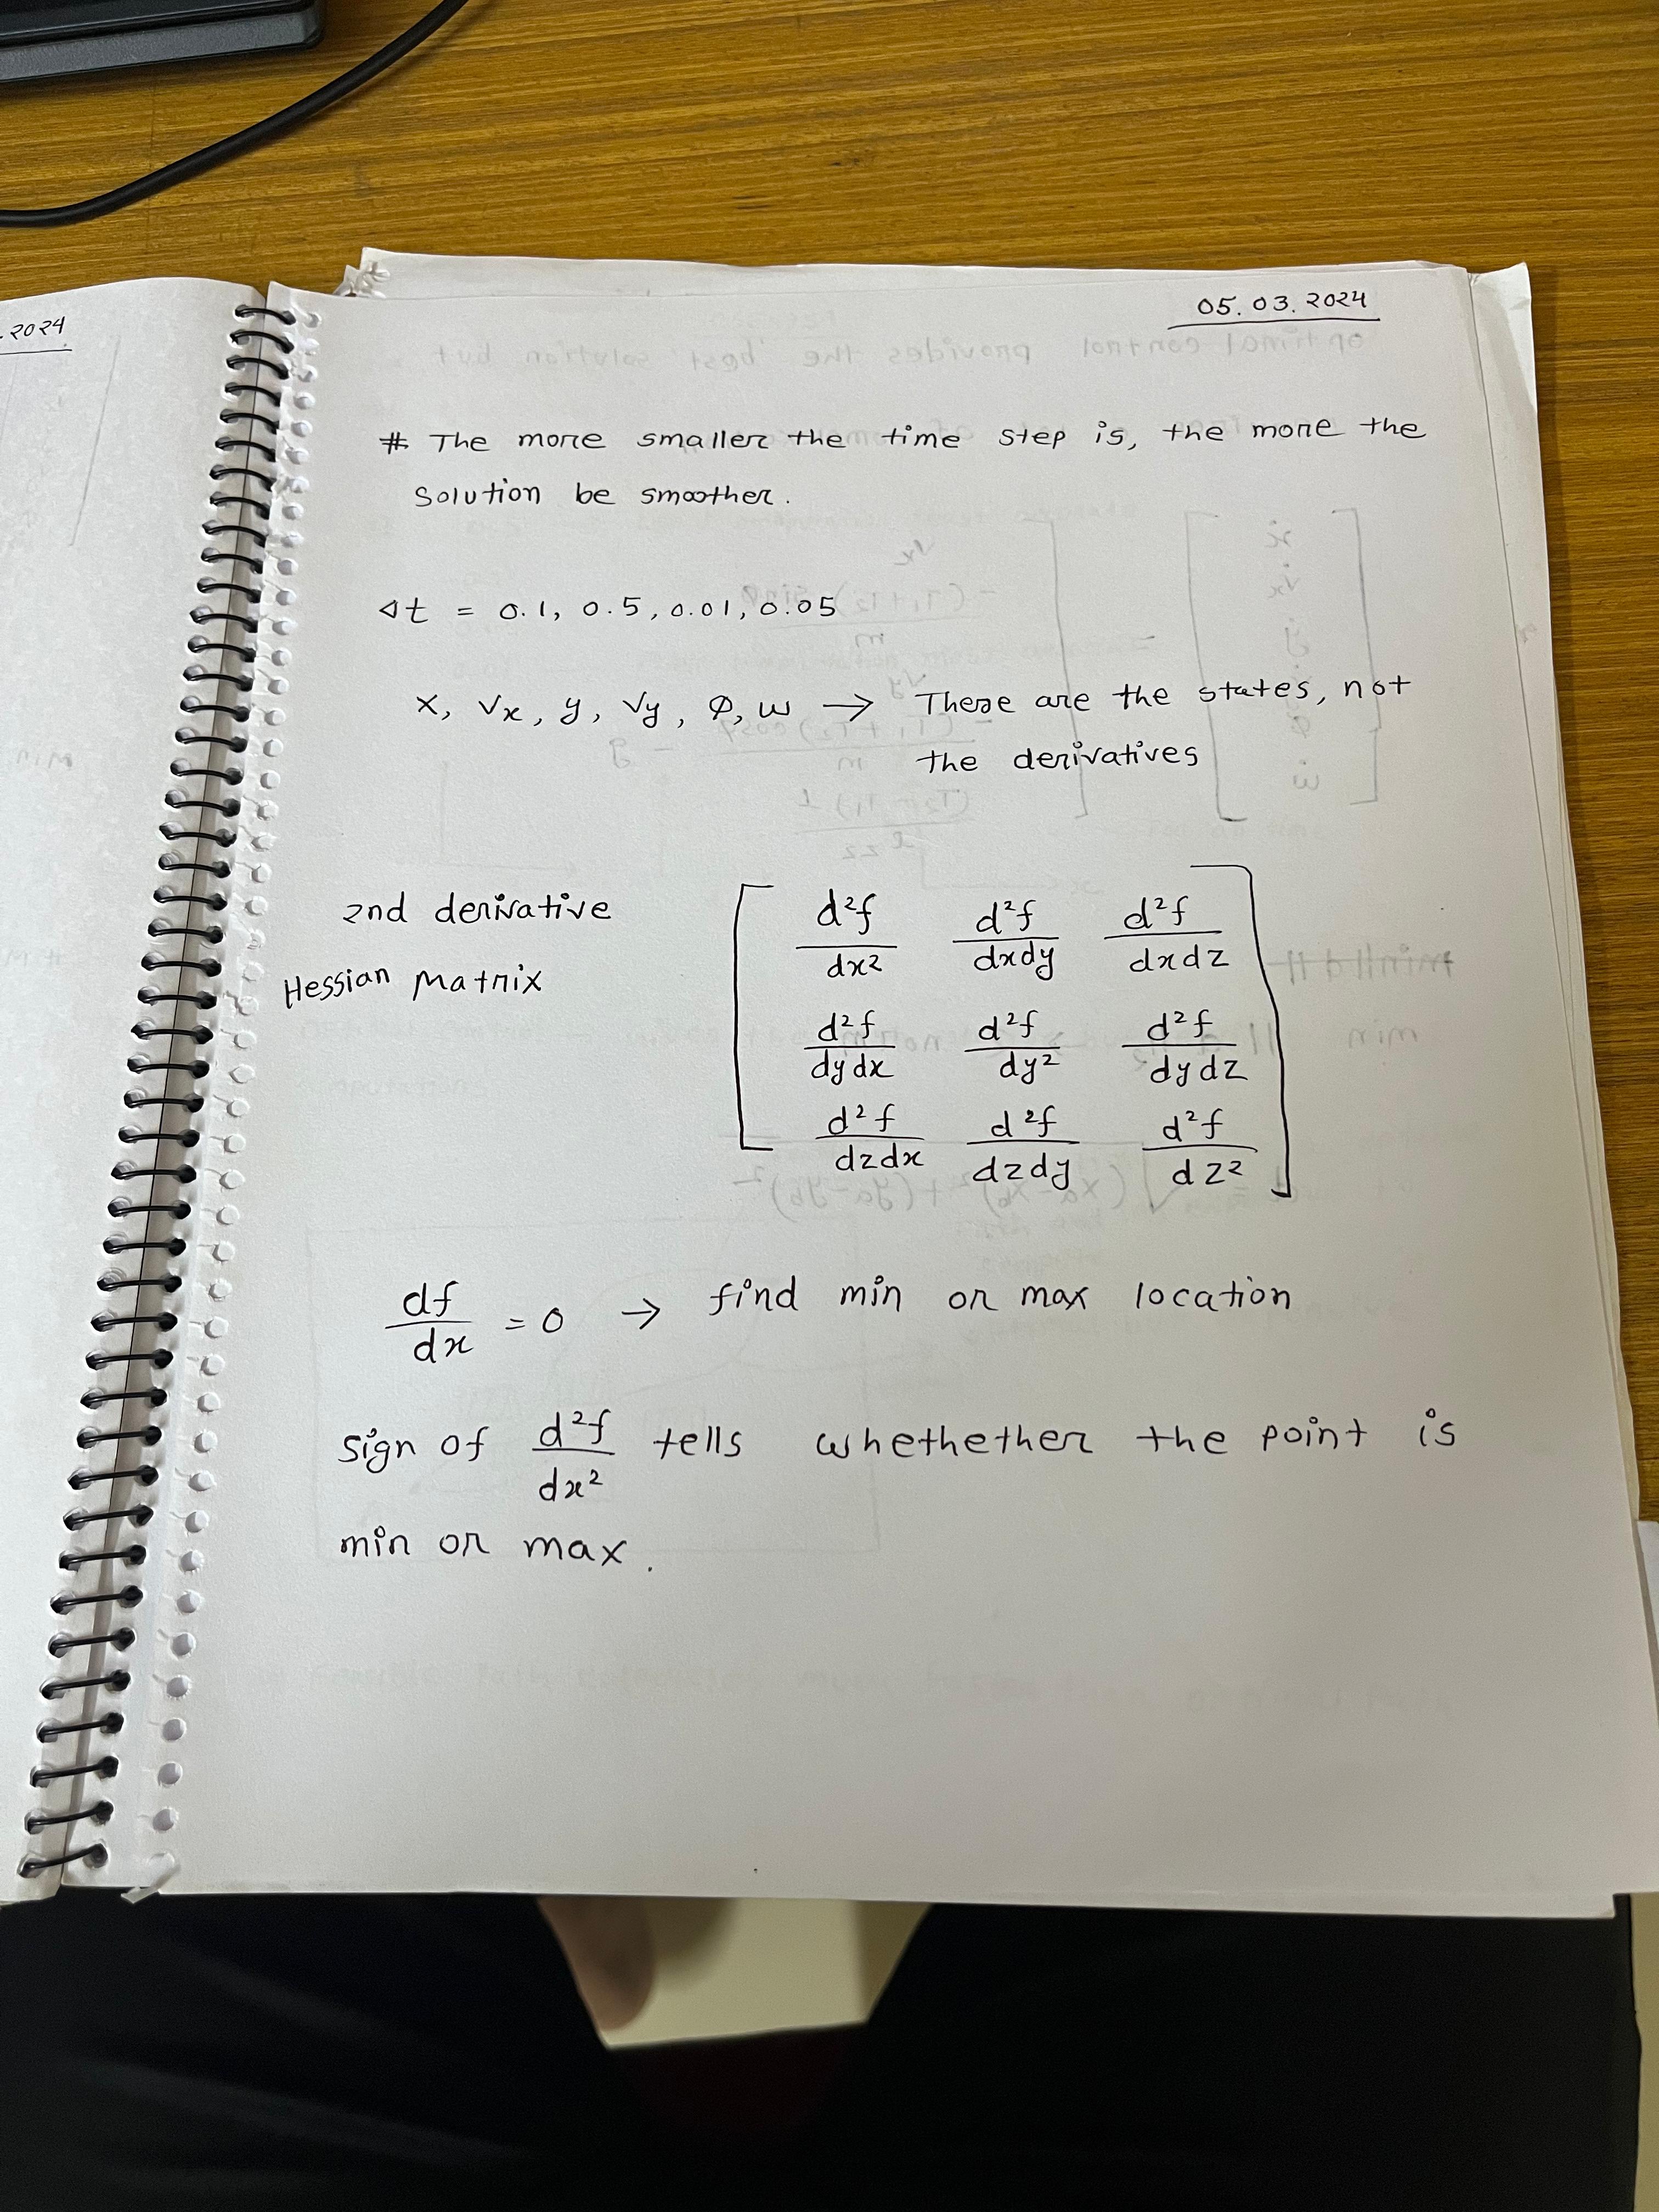 .2024
05.03.2024
# The more smaller the time step is, the more the
solution be smoother.
Δt = 0.1, 0.5, 0.01, 0.05
x, Vx, y, Vy, φ, ω → These are the states, not
the derivatives
2nd derivative
Hessian Matrix
d²f/dx² d²f/dxdy d²f/dxdz
d²f/dydx d²f/dy² d²f/dydz
d²f/dzdx d²f/dzdy d²f/dz²
df/dx = 0 → find min or max location
sign of d²f/dx² tells whethether the point is
min or max.